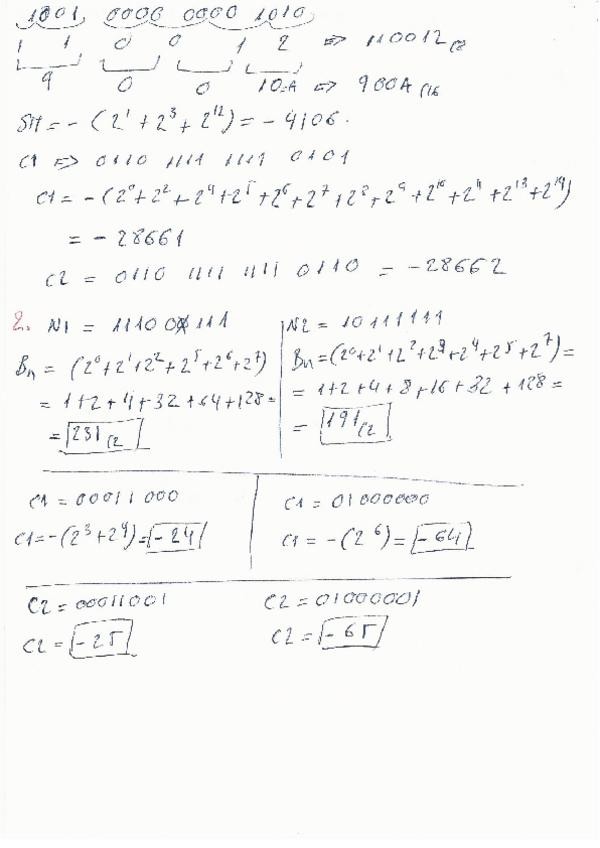 1001 0000 0000 1010
1 1 0 0 1 2 => 110012 (8
9 0 0 10=A => 900A (16
SM = - (2^1 + 2^3 + 2^12) = - 4106.
C1 => 0110 1111 1111 0101
C1 = - (2^0 + 2^2 + 2^4 + 2^5 + 2^6 + 2^7 + 2^8 + 2^9 + 2^10 + 2^11 + 2^13 + 2^14)
= - 28661
C2 = 0110 1111 1111 0110 = -28662
2. N1 = 11100111
Bn = (2^0 + 2^1 + 2^2 + 2^5 + 2^6 + 2^7)
= 1+2+4+32+64+128 =
= 231 (2
N2 = 10111111
Bn = (2^0 + 2^1 + 2^2 + 2^3 + 2^4 + 2^5 + 2^7) =
= 1+2+4+8+16+32+128 =
= 191 (2
C1 = 00011000
C1 = -(2^3 + 2^4) = -24
C1 = 01000000
C1 = -(2^6) = -64
C2 = 00011001
C2 = -25
C2 = 01000001
C2 = -65